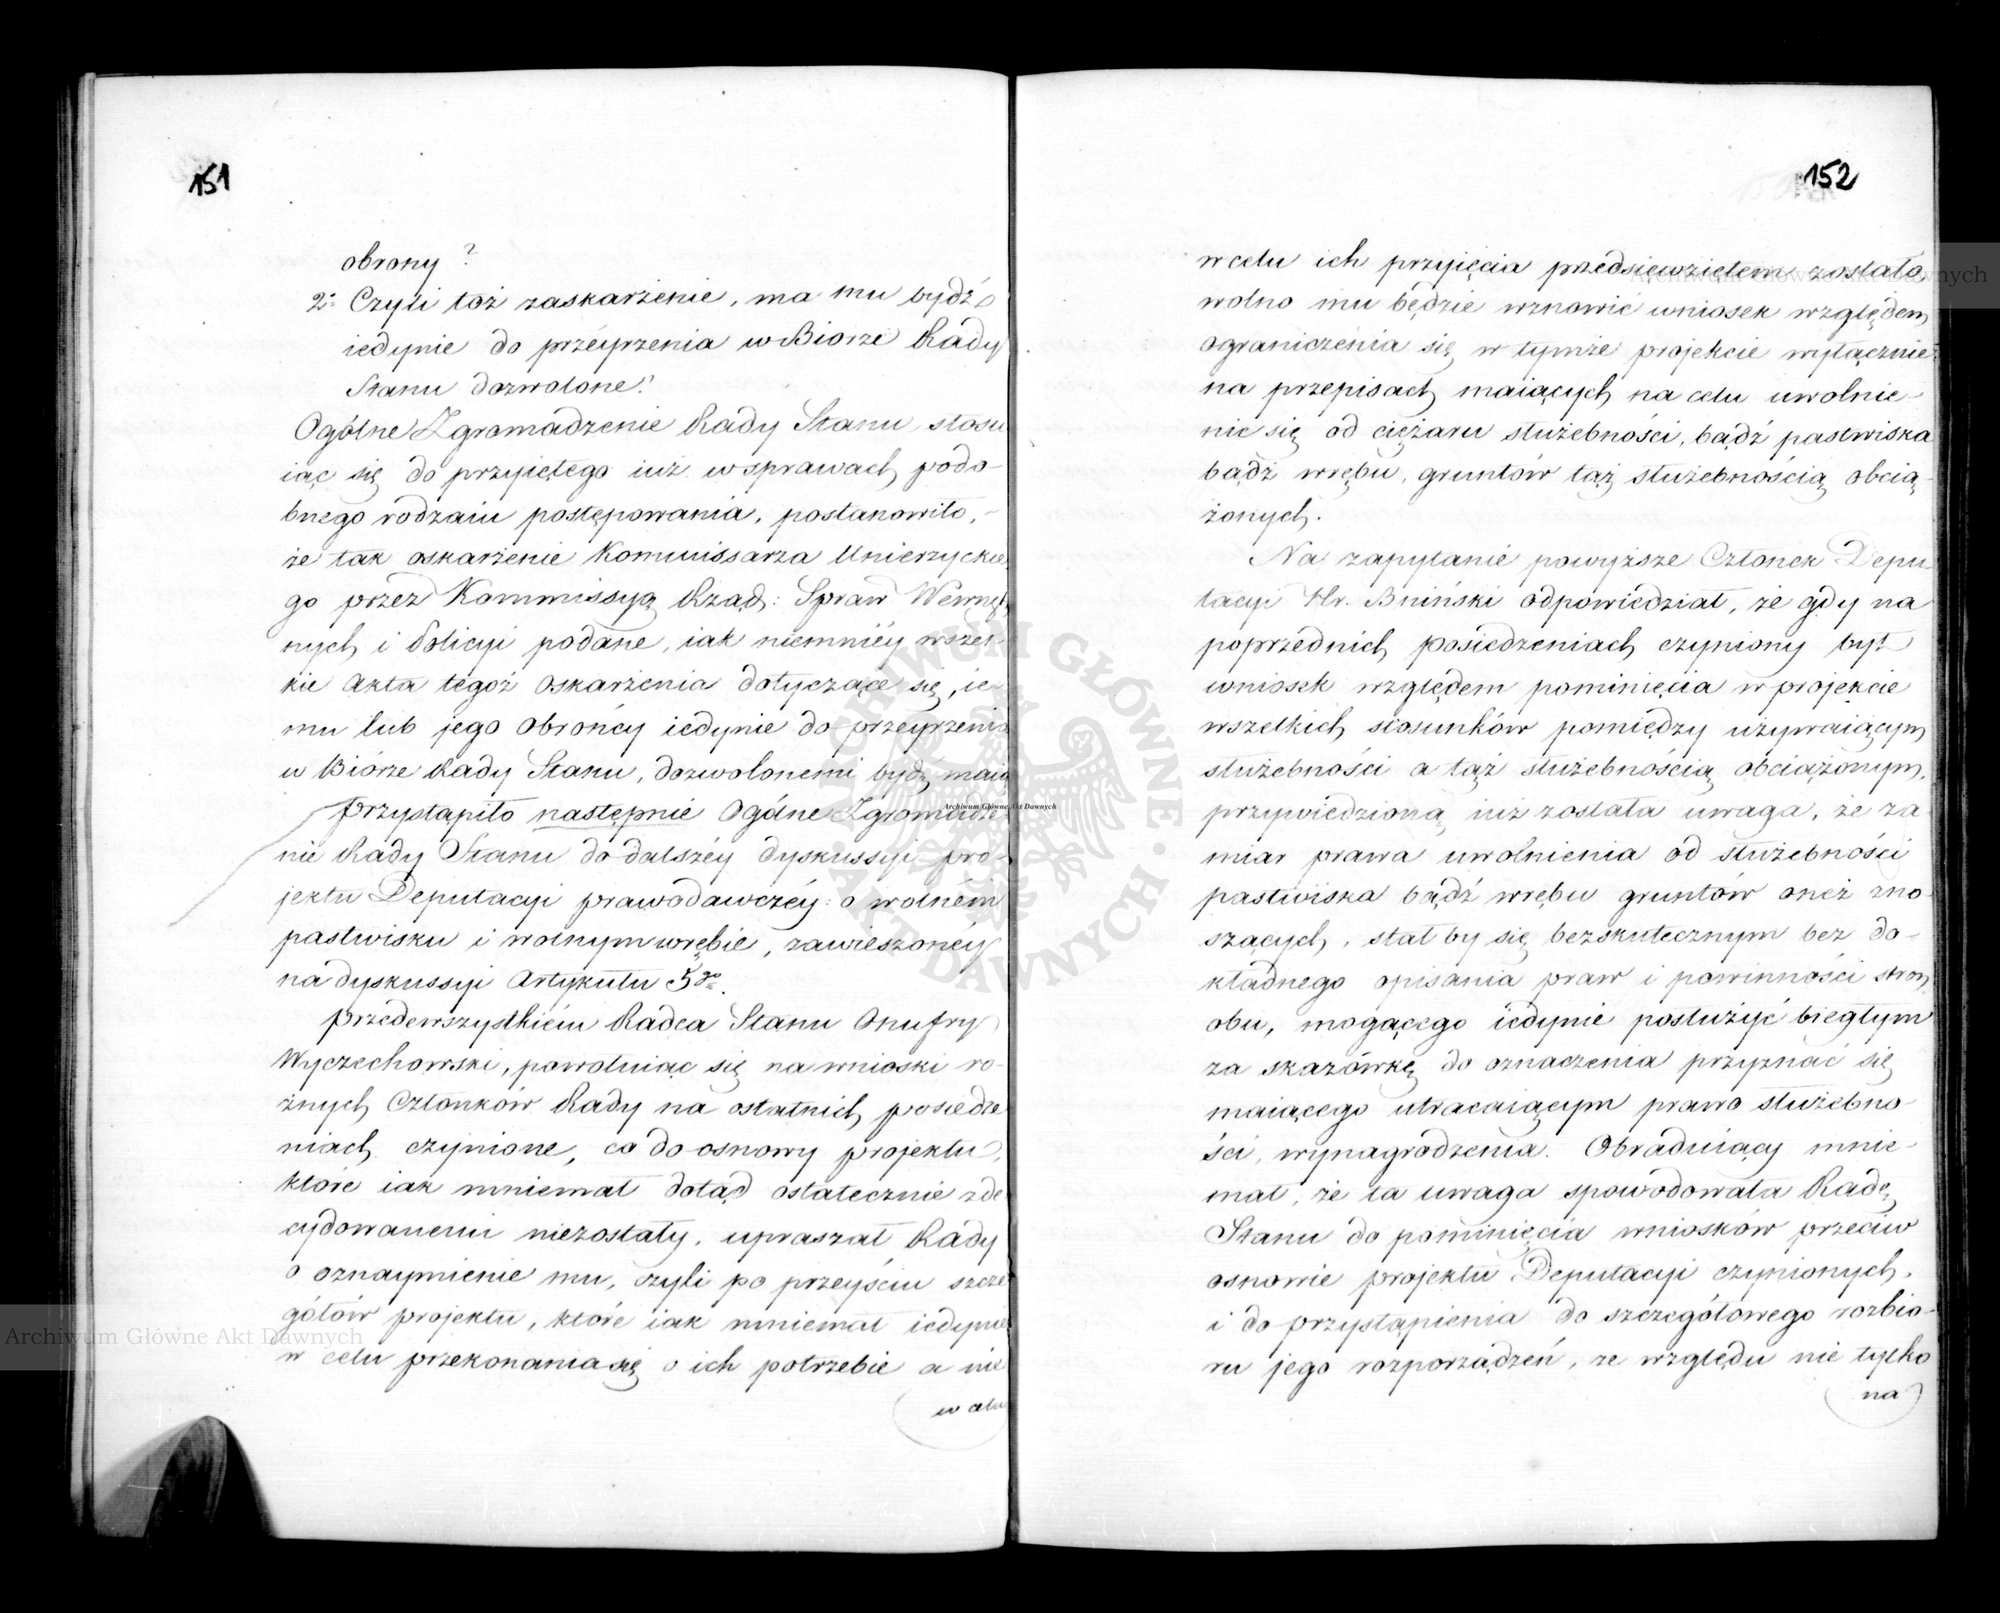 151
obrony?
2° Czyli toż zaskarżenie, ma mu bydź
iedynie do przeyrzenia w Biorze Rady
Stanu dozwolone?
Ogólne Zgromadzenie Rady Stanu stosu
iąc się do przyiętego iuż w sprawach podo-
bnego rodzaiu postępowania, postanowiło,
że tak oskarżenie Kommissarza Unierzyckie
go przez Kommissyą Rząd: Spraw Wewnętrz
nych i Policyi podane, iak niemniéy wszel-
kie Akta tegoż oskarżenia dotyczące się, ie-
mu lub jego Obrońcy iedynie do przeyrzenia
w Biórze Rady Stanu, dozwolonemi bydź maią
Przystąpiło następnie Ogólne Zgromadze
nie Rady Stanu do dalszéy dyskussyi pro-
jektu Deputacyi prawodawczéy: o wolném
pastwisku i wolnym wrębie, zawieszonéy
na dyskussyi Artykułu 5go.
Przedewszystkiém Radca Stanu Onufry
Wyczechowski, powołuiąc się na wnioski ro-
żnych Członków Rady na ostatnich posiedze
niach czynione, co do osnowy projektu,
które iak mniemał dotąd ostatecznie zde
cydowanemi niezostały, upraszał Rady
o oznaymienie mu, czyli po przeyściu szcze
gółów projektu, które iak mniemał iedynie
w celu przekonania się o ich potrzebie a nie
w celu
152
w celu ich przyięcia przedsięwziętem zostało,
wolno mu będzie wznowić wniosek względem
ograniczenia się w tymże projekcie wyłącznie
na przepisach maiących na celu uwolnie-
nie się od ciężaru służebności, bądź pastwiska
bądź wrębu, gruntów tąż służebnością obcią-
żonych.
Na zapytanie powyższe Członek Depu-
tacyi Hr. Bniński odpowiedział, że gdy na
poprzednich posiedzeniach czyniony był
wniosek względem pominięcia w projekcie
wszelkich stosunków pomiędzy używaiącym
służebności a tąż służebnością obciążonym,
przywiedzioną iuż została uwaga, że za
miar prawa uwolnienia od służebności
pastwiska bądź wrębu gruntów oneż zno-
szących, stał by się bezskutecznym bez do-
kładnego opisania praw i powinności stron
obu, mogącego iedynie posłużyć biegłym
za skazówkę do oznaczenia przyznać się
maiącego utracaiącym prawo służebno-
ści, wynagrodzenia. Obraduiący mnie-
mał, że ta uwaga spowodowała Radę
Stanu do pominięcia wniosków przeciw
osnowie projektu Deputacyi czynionych,
i do przystąpienia do szczegółowego rozbio-
ru jego rozporządzeń, ze względu nie tylko
na
Archiwum Główne Akt Dawnych
Archiwum Główne Akt Dawnych
Archiwum Główne Akt Dawnych